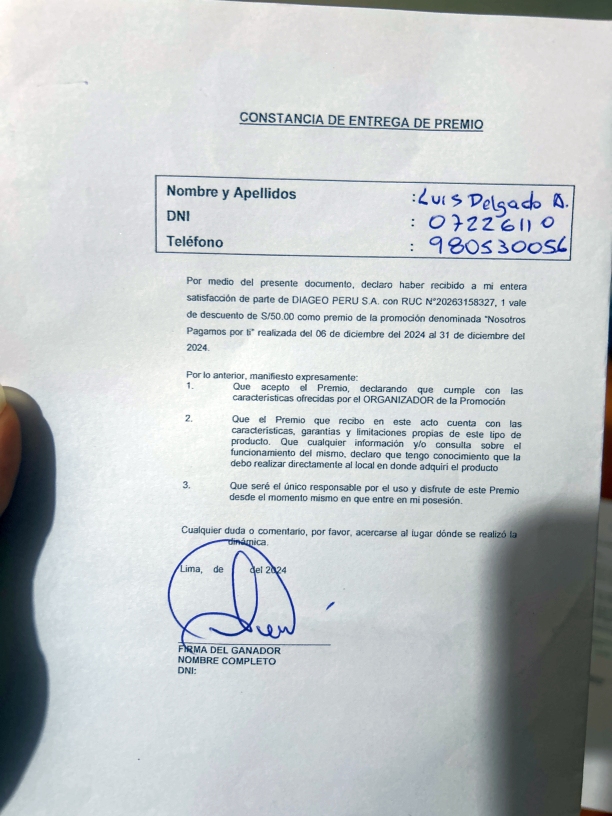 CONSTANCIA DE ENTREGA DE PREMIO
Nombre y Apellidos : Luis Delgado A.
DNI : 07226110
Teléfono : 980530056
Por medio del presente documento, declaro haber recibido a mi entera
satisfacción de parte de DIAGEO PERU S.A. con RUC N°20263158327, 1 vale
de descuento de S/50.00 como premio de la promoción denominada "Nosotros
Pagamos por ti" realizada del 06 de diciembre del 2024 al 31 de diciembre del
2024.
Por lo anterior, manifiesto expresamente:
1. Que acepto el Premio, declarando que cumple con las
características ofrecidas por el ORGANIZADOR de la Promoción
2. Que el Premio que recibo en este acto cuenta con las
características, garantías y limitaciones propias de este tipo de
producto. Que cualquier información y/o consulta sobre el
funcionamiento del mismo, declaro que tengo conocimiento que la
debo realizar directamente al local en donde adquirí el producto
3. Que seré el único responsable por el uso y disfrute de este Premio
desde el momento mismo en que entre en mi posesión.
Cualquier duda o comentario, por favor, acercarse al lugar dónde se realizó la
dinámica.
Lima, de del 2024
FIRMA DEL GANADOR
NOMBRE COMPLETO
DNI: